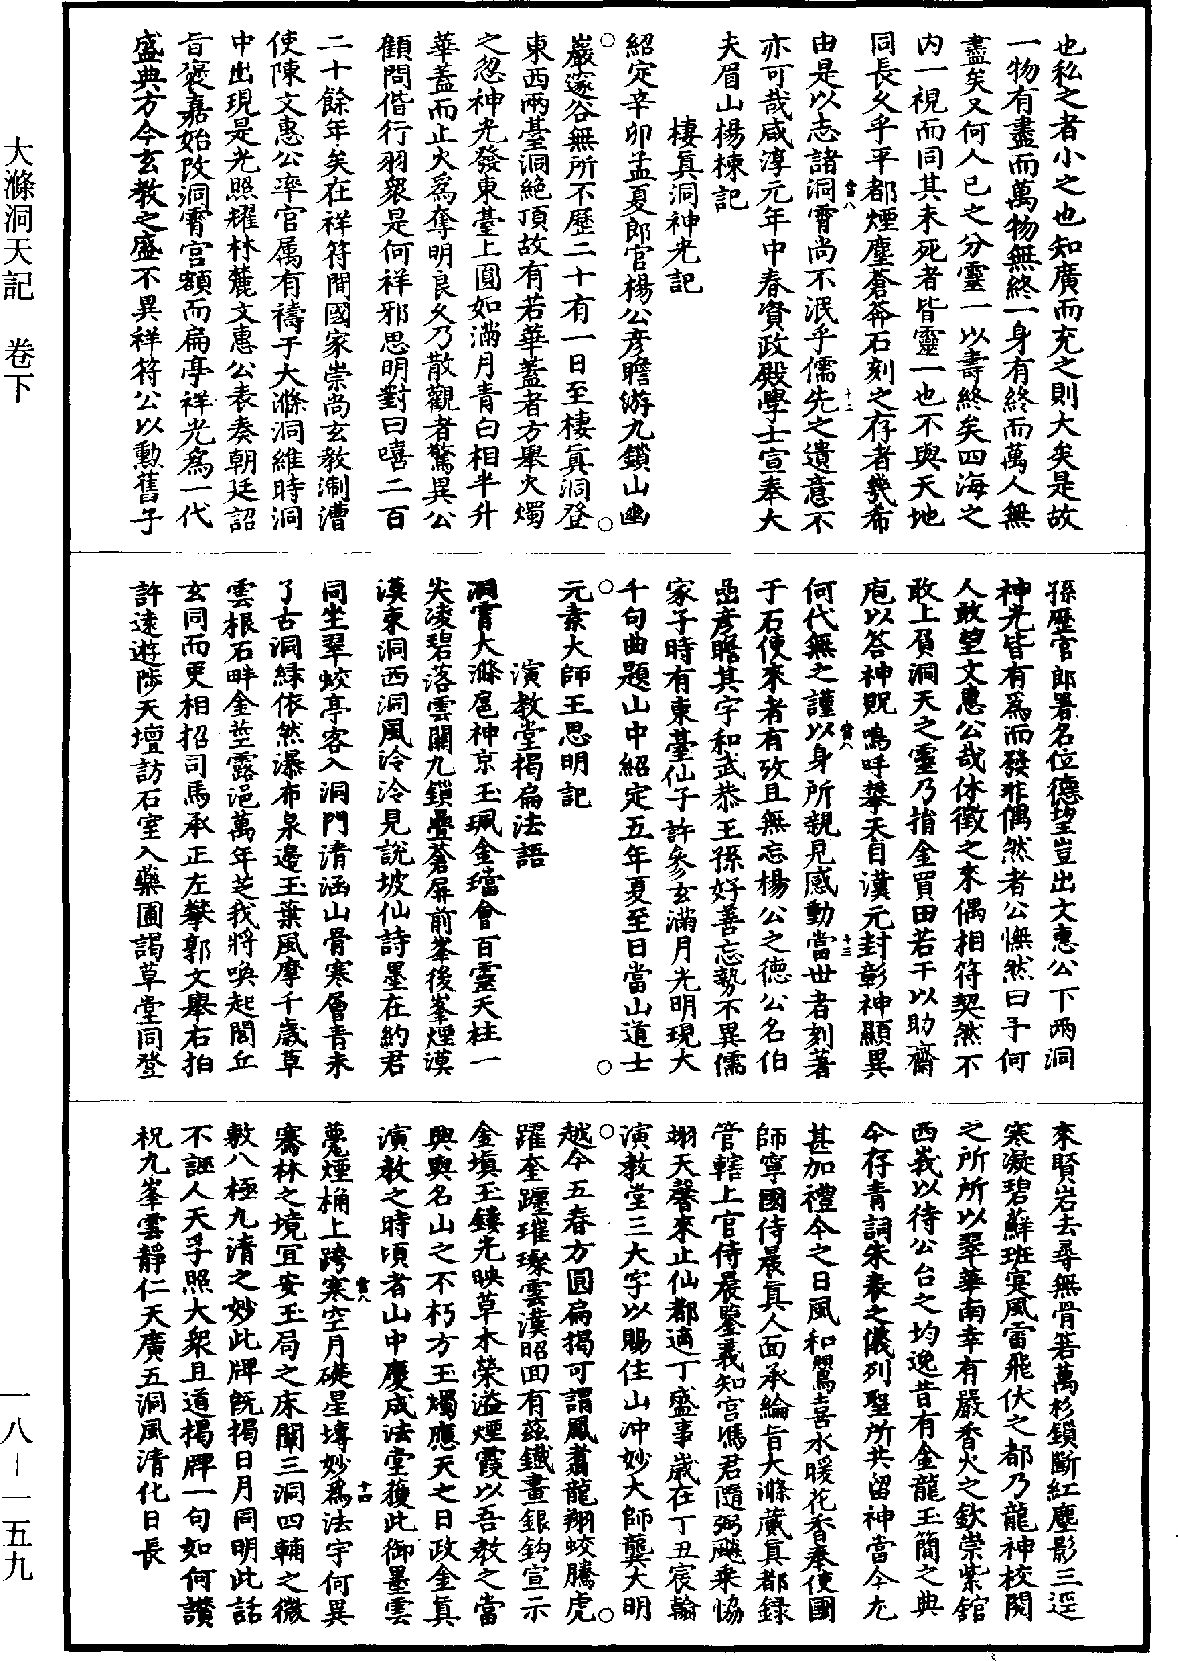 大滌洞天記　卷下
一八－一五九
也私之者小之也知廣而充之則大矣是故
一物有盡而萬物無終一身有終而萬人無
盡矣又何人已之分靈一以壽終矣四海之
內一視而同其未死者皆靈一也不與天地
同長久乎平都煙塵蒼莽石刻之存者幾希
由是以志諸洞霄尚不泯乎儒先之遺意不
亦可哉咸淳元年中春資政殿學士宣奉大
夫眉山楊棟記
棲真洞神光記
紹定辛卯孟夏郎官楊公彥瞻游九鎖山幽
巖邃谷無所不歷二十有一日至棲真洞登
東西兩臺洞絕頂故有若華蓋者方舉火燭
之忽神光發東臺上圓如滿月青白相半升
華蓋而止火為奪明良久乃散觀者驚異公
顧問偕行羽衆是何祥邪思明對曰嘻二百
二十餘年矣在祥符間國家崇尚玄教淛漕
使陳文惠公率官属有禱于大滌洞維時洞
中出現是光照耀林麓文惠公表奏朝廷詔
旨褒嘉始改洞霄宮額而扁亭祥光為一代
盛典方今玄教之盛不異祥符公以勳舊子
孫歷官郎署名位德望豈出文惠公下兩洞
神光皆有為而發非偶然者公憮然曰予何
人敢望文惠公哉休徵之來偶相符契然不
敢上負洞天之靈乃捐金買田若干以助齋
庖以答神貺嗚呼摹天自漢元封彰神顯異
何代無之謹以身所親見感動當世者刻著
于石使來者有攷且無忘楊公之德公名伯
嵒彥瞻其字和武恭王孫好善忘勢不異儒
家子時有東臺仙子許參玄滿月光明現大
千句曲題山中紹定五年夏至日當山道士
元素大師王思明記
演教堂楬扁法語
洞霄大滌扈神京玉珮金璫會百靈天柱一
尖凌碧落雲關九鎖疊蒼屏前峯後峯煙漠
漠東洞西洞風泠泠見說坡仙詩墨在約君
同坐翠蛟亭客入洞門清涵山骨寒層青未
了古洞緑依然瀑布泉邊玉葉風摩千歲草
雲根石畔金莖露浥萬年芝我將喚起閭丘
玄同而更相招司馬承正左攀郭文舉右拍
許遠遊陟天壇訪石室入藥圃謁草堂同登
來賢岩去尋無骨箬萬杉鎖斷紅塵影三逕
寒凝碧蘚班寔風雷飛伏之都乃龍神校閱
之所所以翠華南幸有嚴香火之欽崇紫館
西峩以待公台之均逸昔有金龍玉簡之典
今存青詞朱表之儀列聖所共留神當今尤
甚加禮今之日風和鸎喜水暖花香奉使國
師寧國侍晨真人面承綸旨大滌藏真都錄
管轄上官侍晨鑒義知宮馮君隨弼飈乗協
翊天馨來止仙都適丁盛事歲在丁丑宸翰
演教堂三大字以賜住山冲妙大師龔大明
越今五春方圓扁揭可謂鳳翥龍翔蛟騰虎
躍奎躔璀璨雲漢昭回有茲鐵畫銀鈎宣示
金塡玉鏤光映草木榮溢煙霞以吾教之當
興與名山之不朽方王燭應天之日政金真
演教之時頃者山中慶成法堂獲此御墨雲
甍煙桷上跨寒空月礎星塼妙為法宇何異
騫林之境宜安玉局之床闡三洞四輔之微
敷八極九清之妙此牌旣揭日月同明此話
不誣人天孚照大衆且道楬牌一句如何讚
祝九峯雲靜仁天廣五洞風清化日長